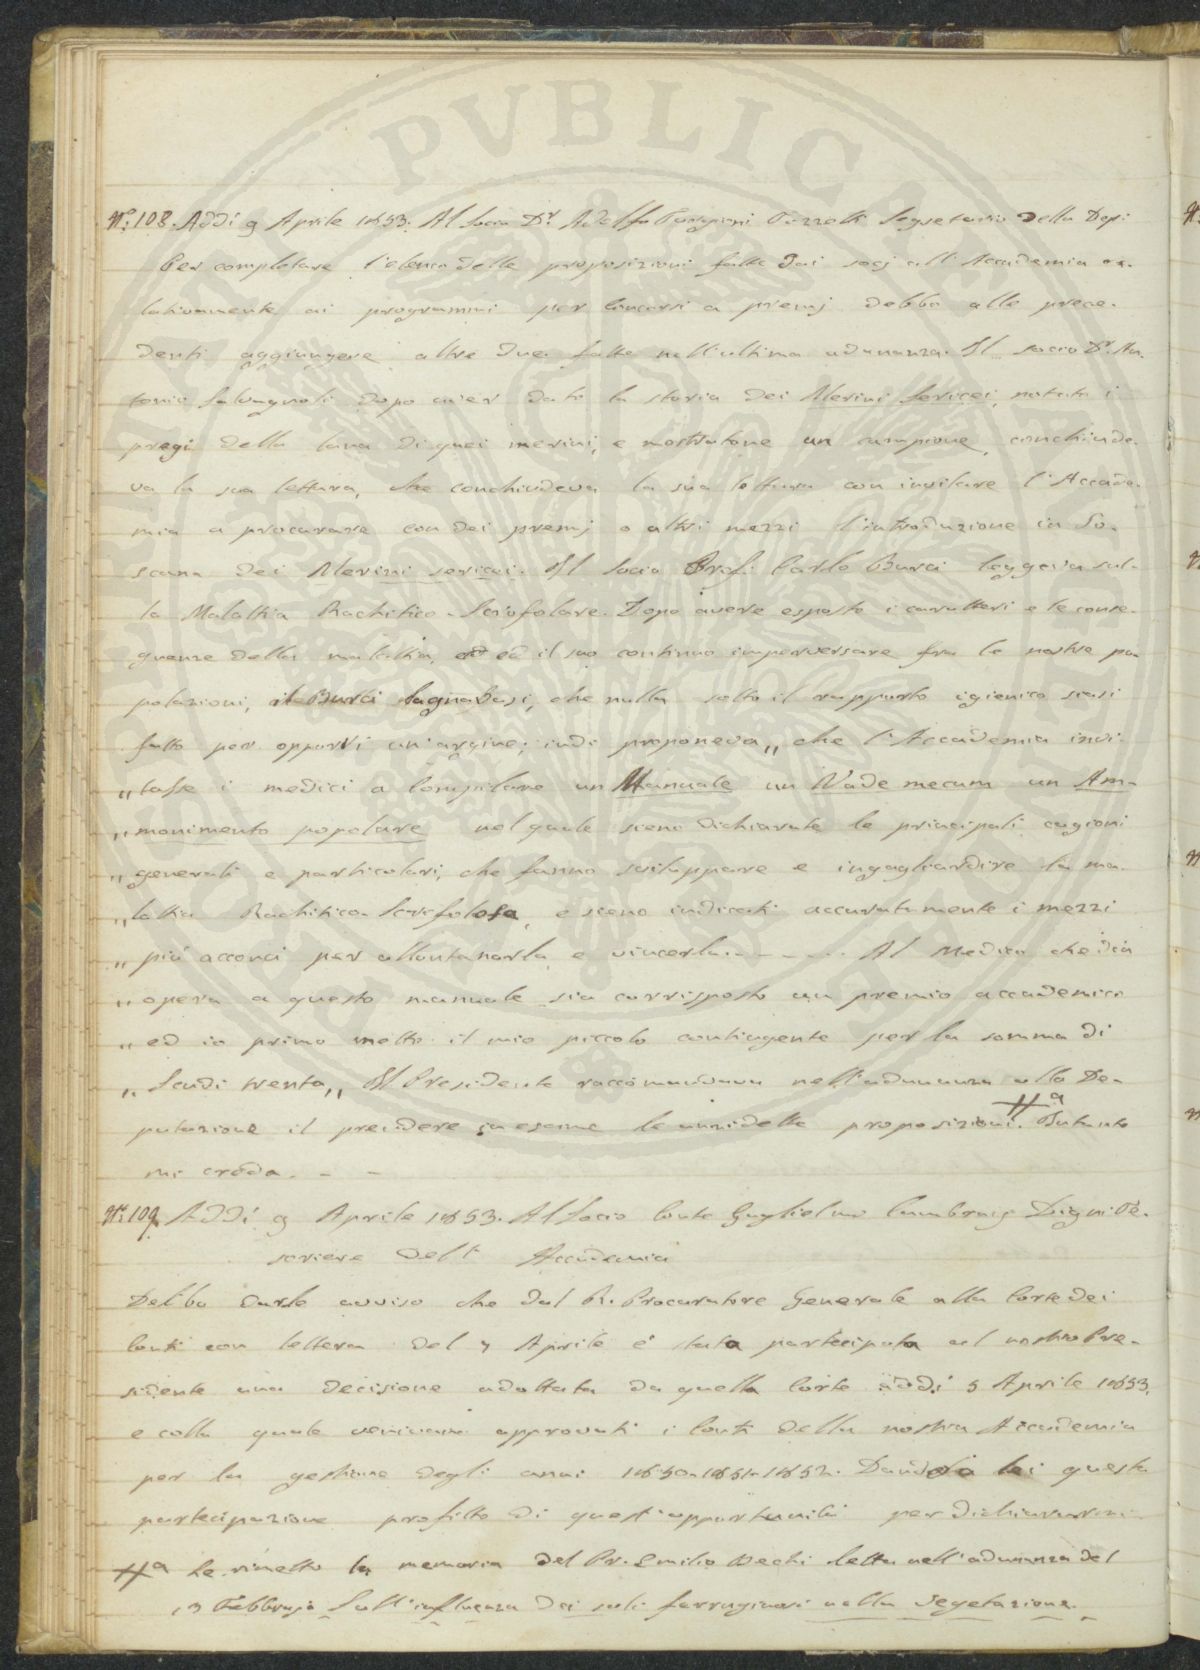 N.º 108. Addì 9 Aprile 1853. Al Socio D.r Adolfo Targioni Tozzetti Segretario della Dep:
Per completare l'elenco delle proposizioni fatte dai socj all'Accademia re-
lativamente ai programmi per Concorsi a premj debbo alle prece-
denti aggiungere altre due fatte nell'ultima adunanza. Il socio D.r An-
tonio Salvagnoli dopo aver dato la storia dei Merini sericei, notati i
pregi della lana di quei merini, e mostratone un campione, conchiude-
va la sua lettura, che conchiudeva la sua lettura con invitare l'Accade-
mia a procurare con dei premj o altri mezzi l'introduzione in To-
scana dei Merini sericei. Il Socio Prof. Carlo Burci leggeva sul-
la Malattia Rachitico-Scrofolare. Dopo avere esposto i caratteri e le conse-
guenze della malattia, ed il suo continuo imperversare fra le nostre po-
polazioni, il Burci lagnavasi, che nulla sotto il rapporto igienico siasi
fatto per opporvi un'argine; indi proponeva „ che l'Accademia invi-
„ tasse i medici a compilare un Manuale un Vade mecum un Am-
„ monimento popolare nel quale sieno dichiarate le principali cagioni
„ generali e particolari, che fanno sviluppare e ingagliardire la ma-
„ lattia Rachitico-Scrofolosa, e sieno indicati accuratamente i mezzi
„ più acconci per allontanarla e vincerla. - - - - - Al Medico che dia
„ opera a questo manuale sia corrisposto un premio accademico
„ ed io primo metto il mio piccolo contingente per la somma di
„ Scudi trenta „ Il Presidente raccomandava nell'adunanza alla De-
putazione il prendere in esame le annidette proposizioni. #a Intanto
mi creda. - -
N.º 109. Addì 9 Aprile 1853. Al Socio Conte Guglielmo Cambray Digny Te-
soriere dell' Accademia
Debbo darle avviso che dal R. Procuratore Generale alla Corte dei
Conti con lettera del 7 Aprile è stata partecipata al nostro Pre-
sidente una decisione adottata da quella Corte addì 5 Aprile 1853,
e colla quale venivano approvati i Conti della nostra Accademia
per la gestione degli anni 1850-1851-1852. Dando a lei questa
partecipazione profitto di quest'opportunità per dichiararmi.
#a Le rimetto la memoria del Pr. Emilio Bechi letta nell'adunanza del
13 Febbrajo Sull'influenza dei sali ferruginosi nella vegetazione.